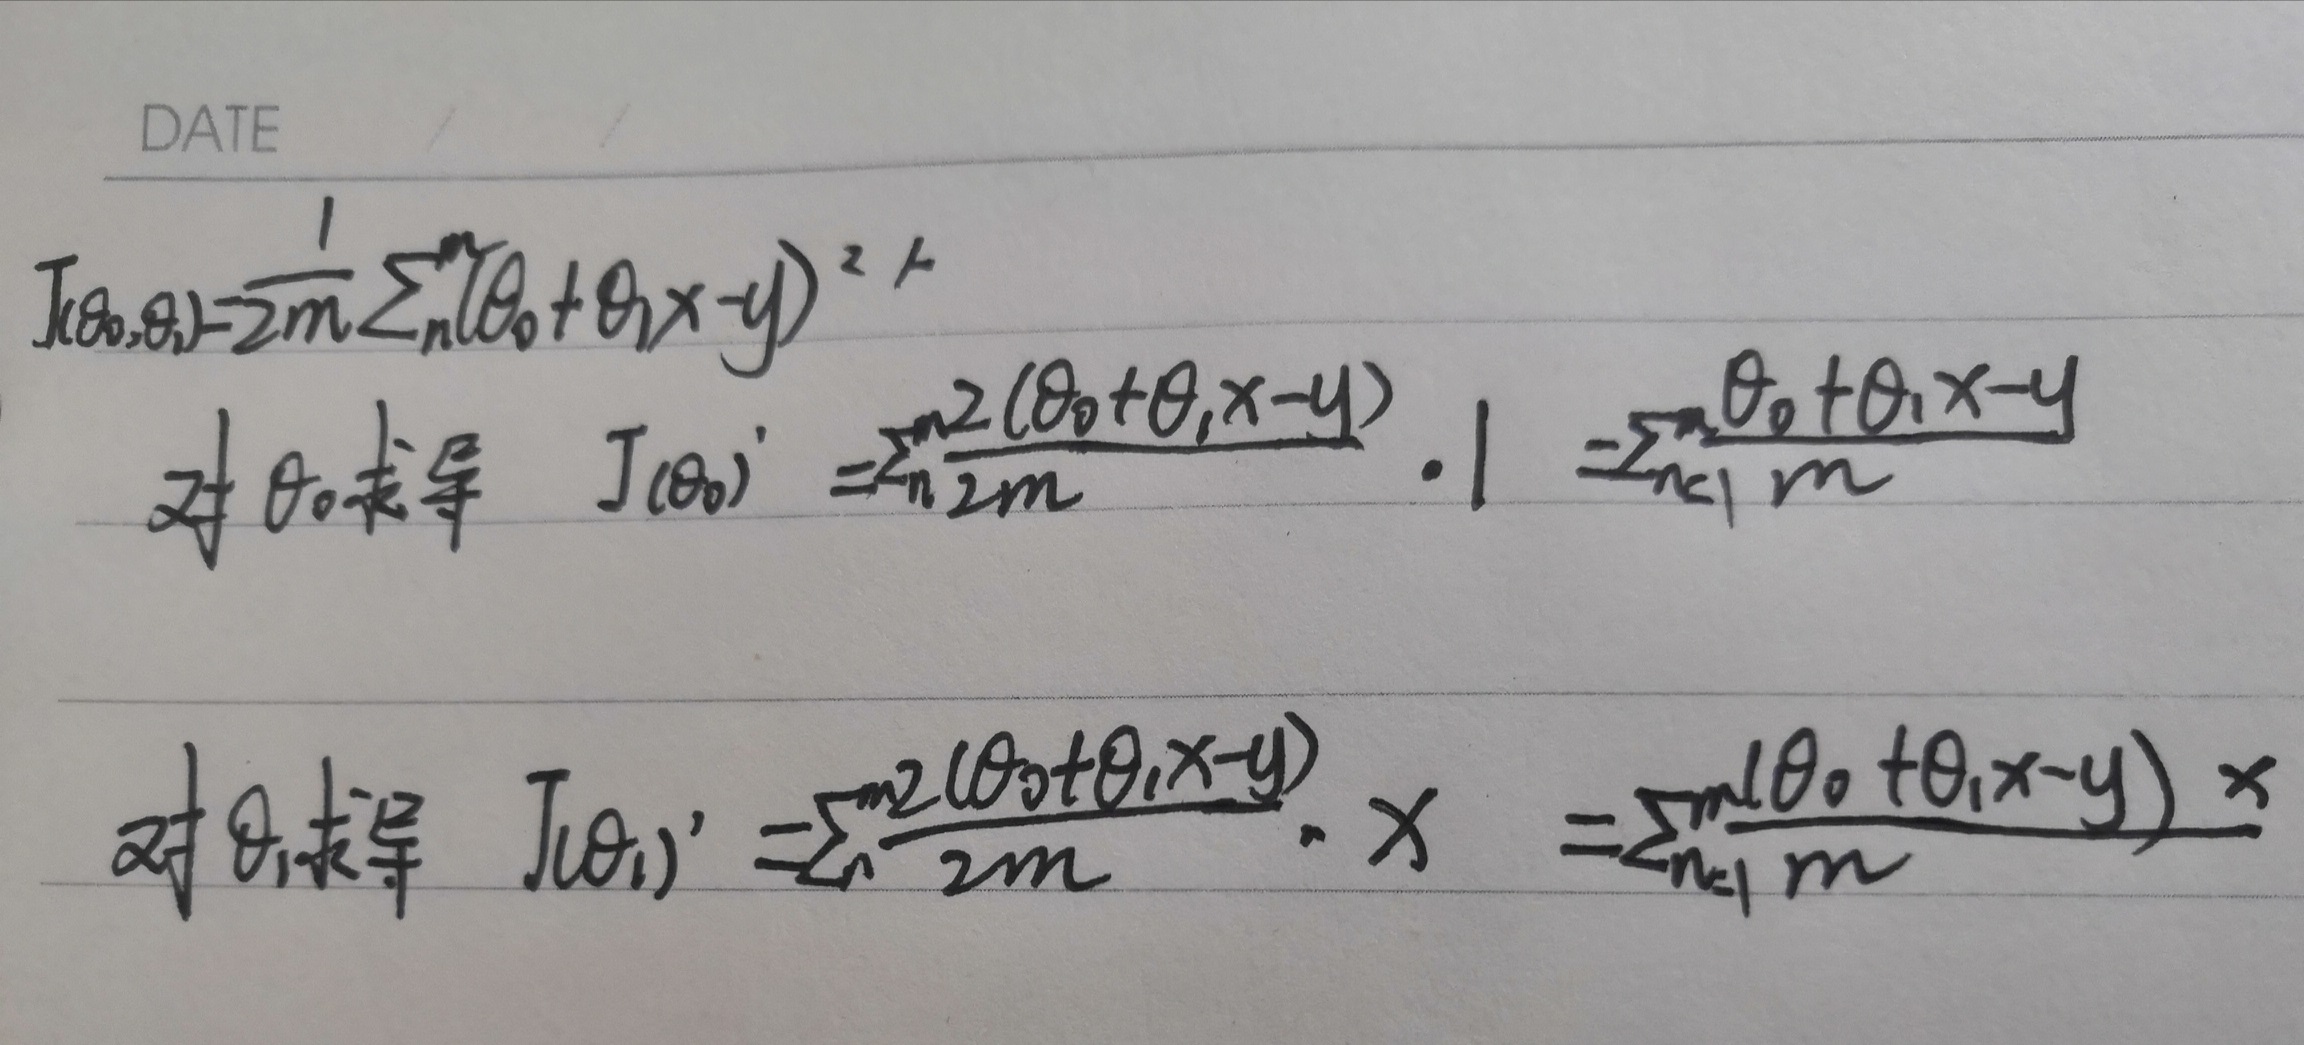 DATE / /
J(θ₀,θ₁)=1/2m Σₙᵐ(θ₀+θ₁x-y)²
对θ₀求导 J(θ₀)' =Σₙᵐ 2(θ₀+θ₁x-y)/2m · 1 =Σₙ₌₁ᵐ θ₀+θ₁x-y/m
对θ₁求导 J(θ₁)' =Σₙᵐ 2(θ₀+θ₁x-y)/2m · x =Σₙ₌₁ᵐ (θ₀+θ₁x-y)x/m